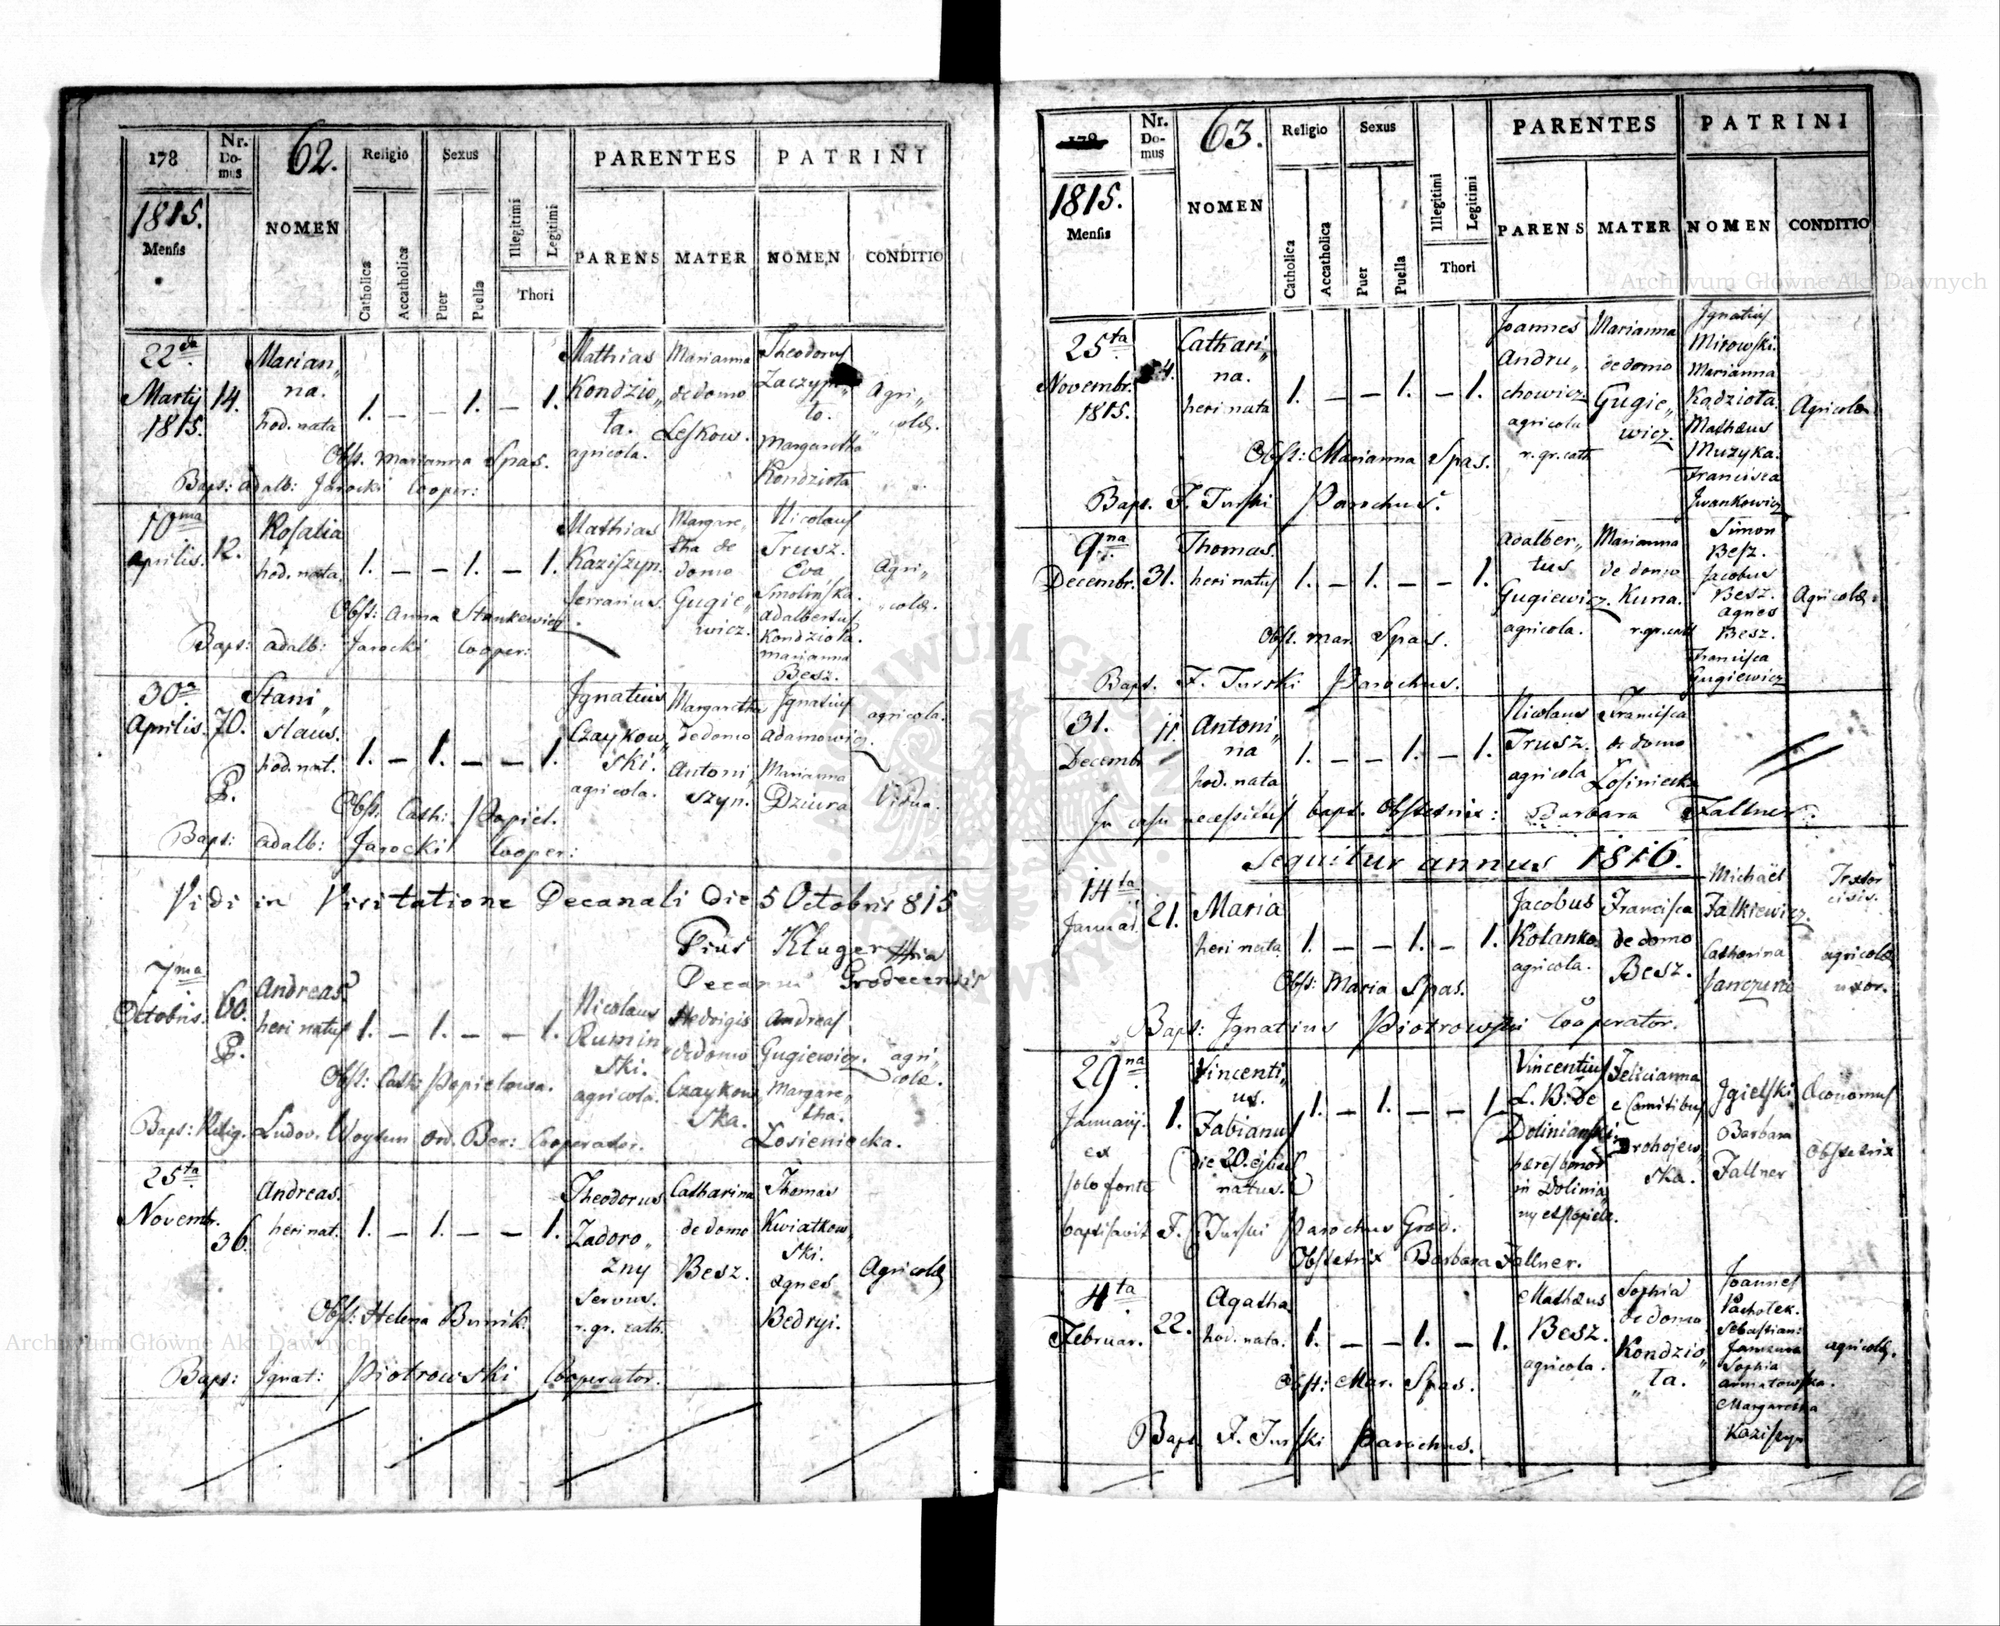 178
Nr.
Do-
mus
62.
Religio
Sexus
PARENTES
PATRINI
1815.
Mensis
NOMEN
Catholica
Accatholica
Puer
Puella
Illegitimi
Legitimi
Thori
PARENS
MATER
NOMEN
CONDITIO
22da
Martij
1815.
14.
Marian„
na.
hod. nata
1. – – 1. – 1.
Mathias
Kondzio„
ła.
agricola.
Marianna
de domo
Leskow.
Theodorus
Zaczyn„
ło.
Margaretha
Kondzioła
Agri„
„colæ.
Obst. Marianna Spas.
Baps: Adalb: Jarocki Cooper:
10ma
Aprilis.
12.
Rosalia
hod. nata.
1. – – 1. – 1.
Mathias
Kaziszyn.
ferrarius.
Margare„
tha de
domo
Gugie„
wicz.
Nicolaus
Trusz.
Eva
Smolińska.
Adalbertus
Kondzioła.
Marianna
Besz.
Agri„
„colæ.
Obst: Anna Stankewicz
Baps: Adalb: Jarocki Cooper:
30a
Aprilis.
70.
Stani„
slaus.
hod. nat.
1. – 1. – – 1.
Ignatius
Czaykow„
ski.
agricola.
Margaretha
de domo
Antoni„
szyn.
Ignatius
Adamowicz.
Marianna
Dziura
agricola.
Vidua.
Obst: Cath: Popiel.
Baps: Adalb: Jarocki Cooper:
Vidi in Visitatione Decanali Die 5 Octobris 815
Pius Kluger
Decanus Grodecensis
7ma
Octobris.
60.
Andreas
heri natus
1. – 1. – – 1.
Nicolaus
Rumin„
ski.
agricola.
Hedvigis
de domo
Czaykow„
ska.
Andreas
Gugiewicz.
Margare„
tha.
Łosieniecka.
agri„
colæ.
Obst: Cath: Popielowa.
Baps: Relig. Ludov. Woytun ord. Ber: Cooperator.
25ta
Novembr.
36.
Andreas.
heri nat.
1. – 1. – – 1.
Theodorus
Zadoro„
zny
servus.
r. gr. cath.
Catharina
de domo
Besz.
Thomas
Kwiatkow„
ski.
Agnes
Bedryi.
Agricolæ
Obst: Helena Bunik.
Baps: Ignat: Piotrowski Cooperator.
Nr.
Do-
mus
63.
Religio
Sexus
PARENTES
PATRINI
1815.
Mensis
NOMEN
Catholica
Accatholica
Puer
Puella
Illegitimi
Legitimi
Thori
PARENS
MATER
NOMEN
CONDITIO
25ta
Novembr.
1815.
Cathari„
na.
heri nata
1. – – 1. – 1.
Joannes
Andru„
chowicz
agricola
r. gr. cath
Marianna
de domo
Gugie„
wicz.
Ignatius
Mirowski.
Marianna
Kądzioła.
Mathæus
Muzyka.
Francisca
Iwankowicz
Agricolæ
Obst: Marianna Spas.
Bapt. F. Turski Parochus.
9na
Decembr.
31.
Thomas.
heri natus
1. – 1. – – 1.
Adalber„
tus
Gugiewicz.
agricola.
Marianna
de domo
Kuna.
r. gr. cath
Simon
Besz.
Jacobus
Besz.
Agnes
Besz.
Francisca
Gugiewicz
Agricolæ
Obst. Mar. Spas.
Bapt. F. Turski Parochus.
31.
Decembr.
11.
Antoni„
na
hod. nata
1. – – 1. – 1.
Nicolaus
Trusz.
agricola
Francisca
de domo
Łosiniecka
In casu necessitatis bapt. Obstetrix: Barbara Fallner.
Sequitur annus 1816.
14ta
Januar.
21.
Maria
heri nata.
1. – – 1. – 1.
Jacobus
Kolanko
agricola.
Francisca
de domo
Besz.
Michaël
Falkiewicz.
Catharina
Janczura
Textor
civis.
agricolæ
uxor.
Obst: Maria Spas.
Baps: Ignatius Piotrowski Cooperator.
29na
Januarij.
ex
solo fonte
1.
Vincenti„
us.
Fabianus
(die 20. ejusd
natus.)
1. – 1. – – 1.
Vincentius
L. B. de
Doliniański
hæres bonor
in Dolinia„
ny et Popiele.
Felicianna
e Comitibus
Drohojew„
ska.
Igielski
Barbara
Fallner
Œconomus
Obstetrix
baptisavit F. Turski Parochus Grod.
Obstetrix Barbara Fallner.
4ta
Februar.
22.
Agatha
hod. nata.
1. – – 1. – 1.
Mathæus
Besz.
agricola.
Sophia
de domo
Kondzio„
„ła.
Joannes
Pachołek.
Sebastian:
Sophia
Armatowska.
Margaretha
Kaziszyn
agricolæ.
Obst: Mar. Spas.
Bapt. F. Turski Parochus.
Archiwum Główne Akt Dawnych
Archiwum Główne Akt Dawnych